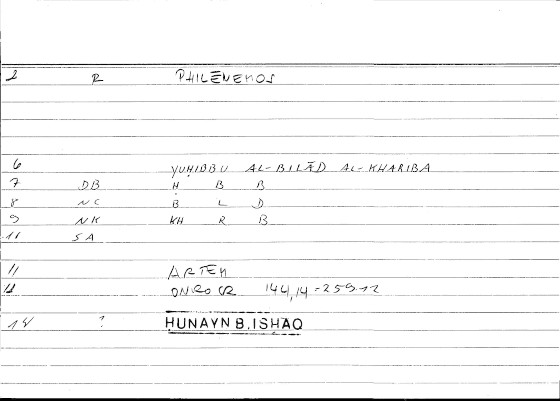 2 R PHILĒNEMOS
6 YUḤIBBU AL-BILĀD AL-KHARIBA
7 DB Ḥ B B
8 NC B L D
9 NK KH R B
11 SA
11 ARTEM
12 ONROCR 144,14 = 259.12
14 ? ḤUNAYN B. ISḤĀQ